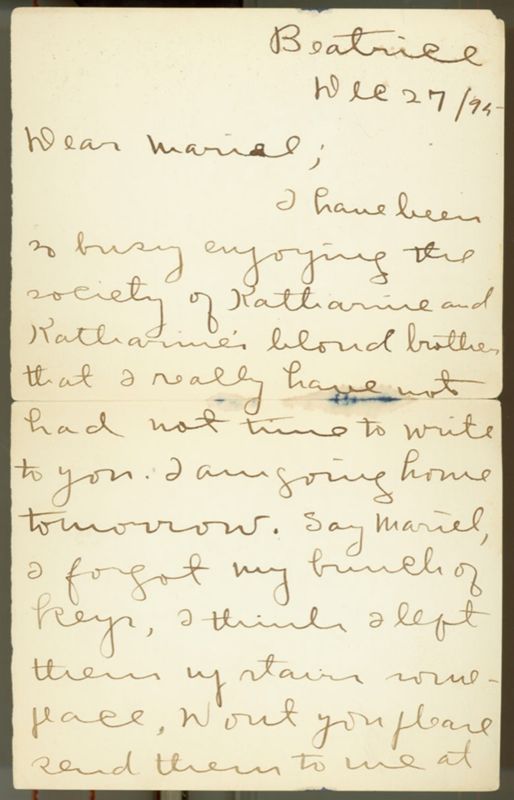 Beatrice
Dec 27/95
Dear Mariel;
I have been
so busy enjoying the
society of Katharine and
Katharine's blond brother
that I really have not
had not time to write
to you. I am going home
tomorrow. Say Mariel,
I forgot my bunch of
keys, I think I left
them up stairs some-
place. Wont you please
send them to me at